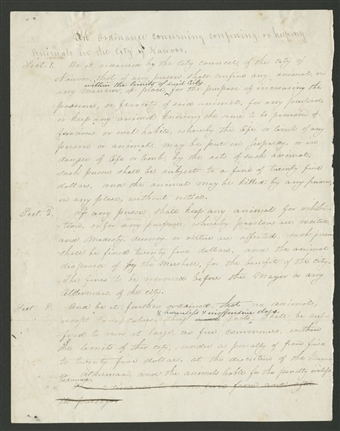 An Ordinance concerning confining or keeping
Animals in the City of Nauvoo.
Sect. 1. Be it ordained by the City Council of the City of
Nauvoo, that if any person shall confine any animal, in
within the limits of said City
any manner or place, for the purpose of increasing the
passions, or ferocity of said animal, for any purpose,
or keep any animal known to be possessed of
ferocious or evil habits, whereby the life or limb of any
person or animal, may be put in jeopardy, or in
danger of life or limb, by the act of such animal,
such person shall be subject to a fine of twenty five
dollars, and the animal may be killed by any person
in any place, without notice.
Sect. 2. If any person shall keep any animal for
for any purpose, whereby passions are excited
and modesty, or virtue are affected such person
shall be fined twenty five dollars, and the animal
disposed of by the Marshal, for the benefit of the City.
The fines to be recovered before the Mayor or any
Alderman of the City.
Sect. 3. And be it further ordained, that no animal,
except &
shall be
to run at large, as free commoners, within
the limits of this city, under a penalty of from five
to twenty five dollars, at the discretion of the
Alderman and the animal liable for the penalty